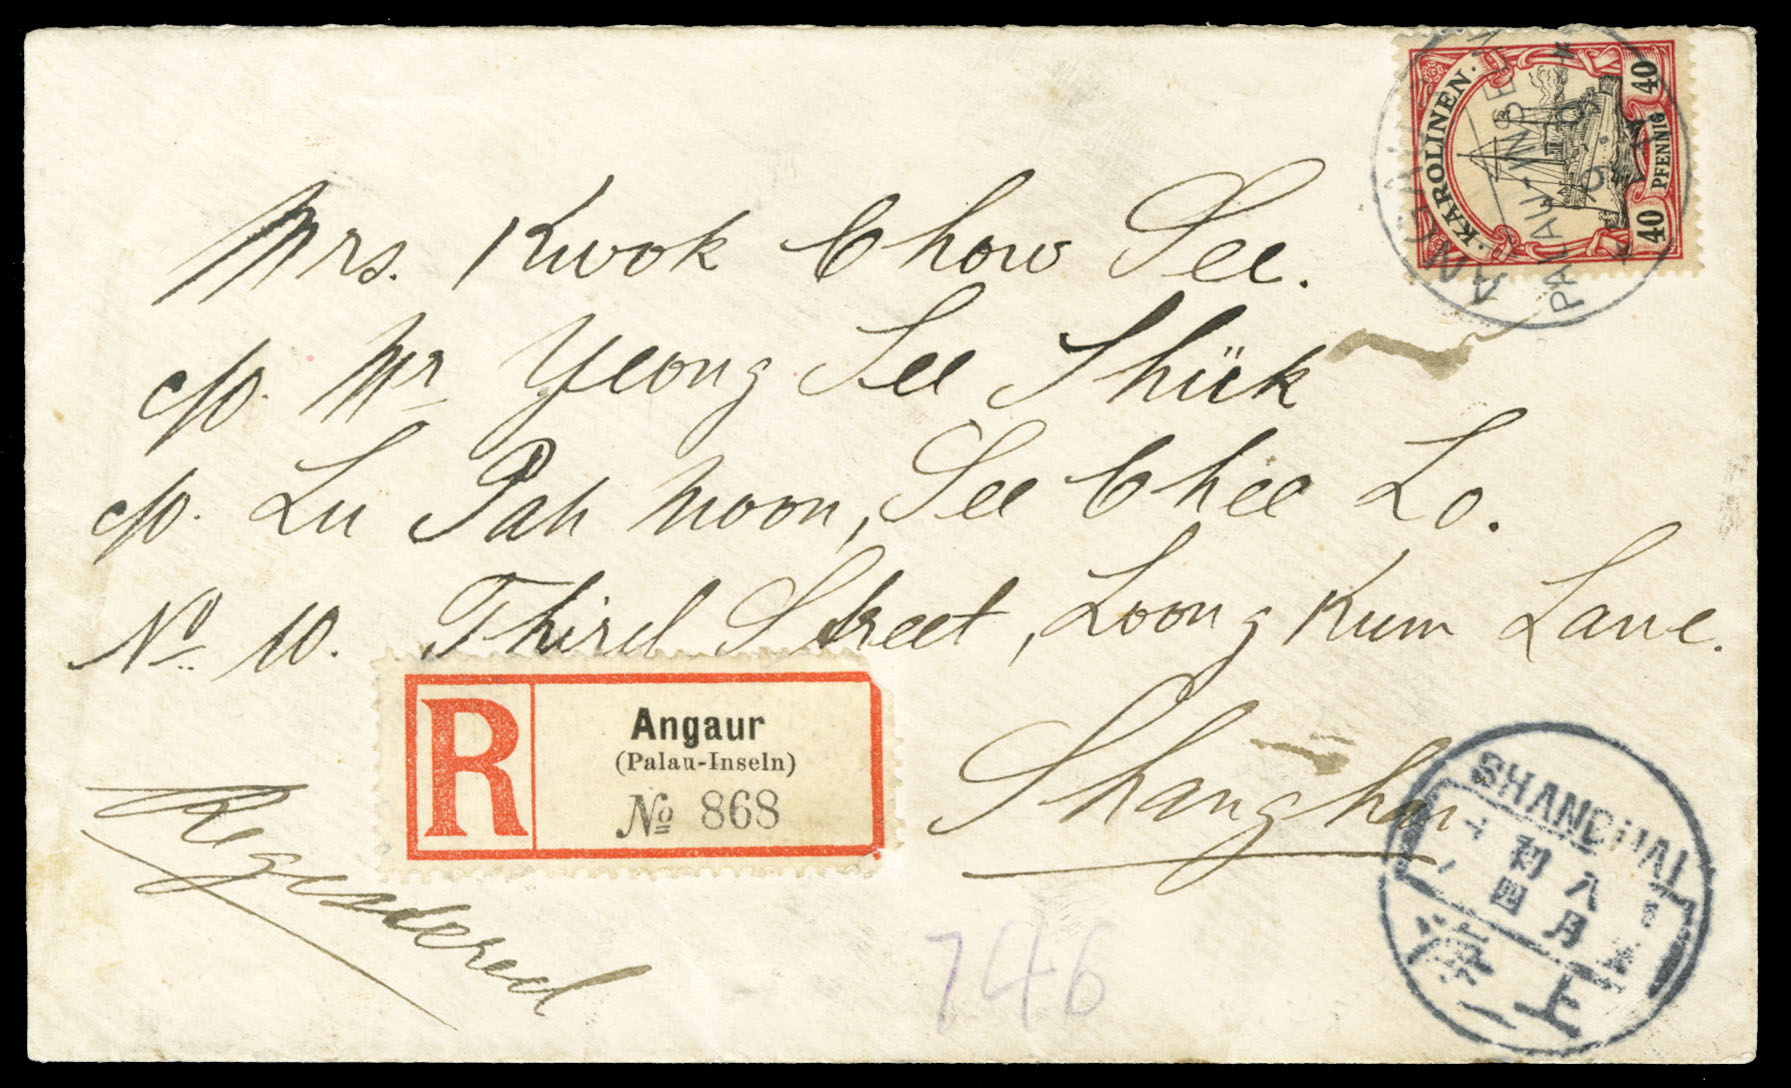 KAROLINEN
40 PFENNIG 40
ANGAUR
PALAU-INSELN
Mrs. Kwok Chow See.
c/o. Mr Yeong See Shük
c/o. Lu Pah Moon, See Chee Lo.
No 10. Third Street, Loong Kum Lane.
Shanghai
R
Angaur
(Palau-Inseln)
No 868
Registered
746
SHANGHAI
初八
四月
海上